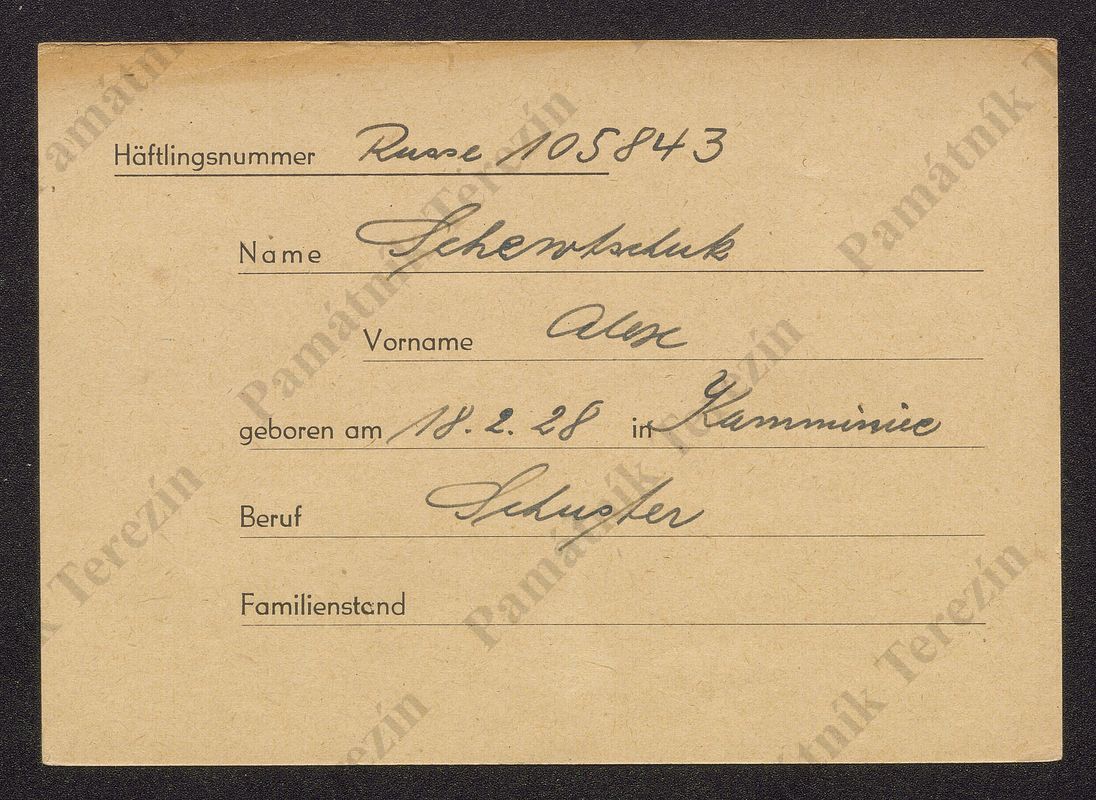 Häftlingsnummer Russe 105843
Name Schewtschuk
Vorname Alex
geboren am 18. 2. 28 in Kamminiec
Beruf Schuster
Familienstand
Památník Terezín